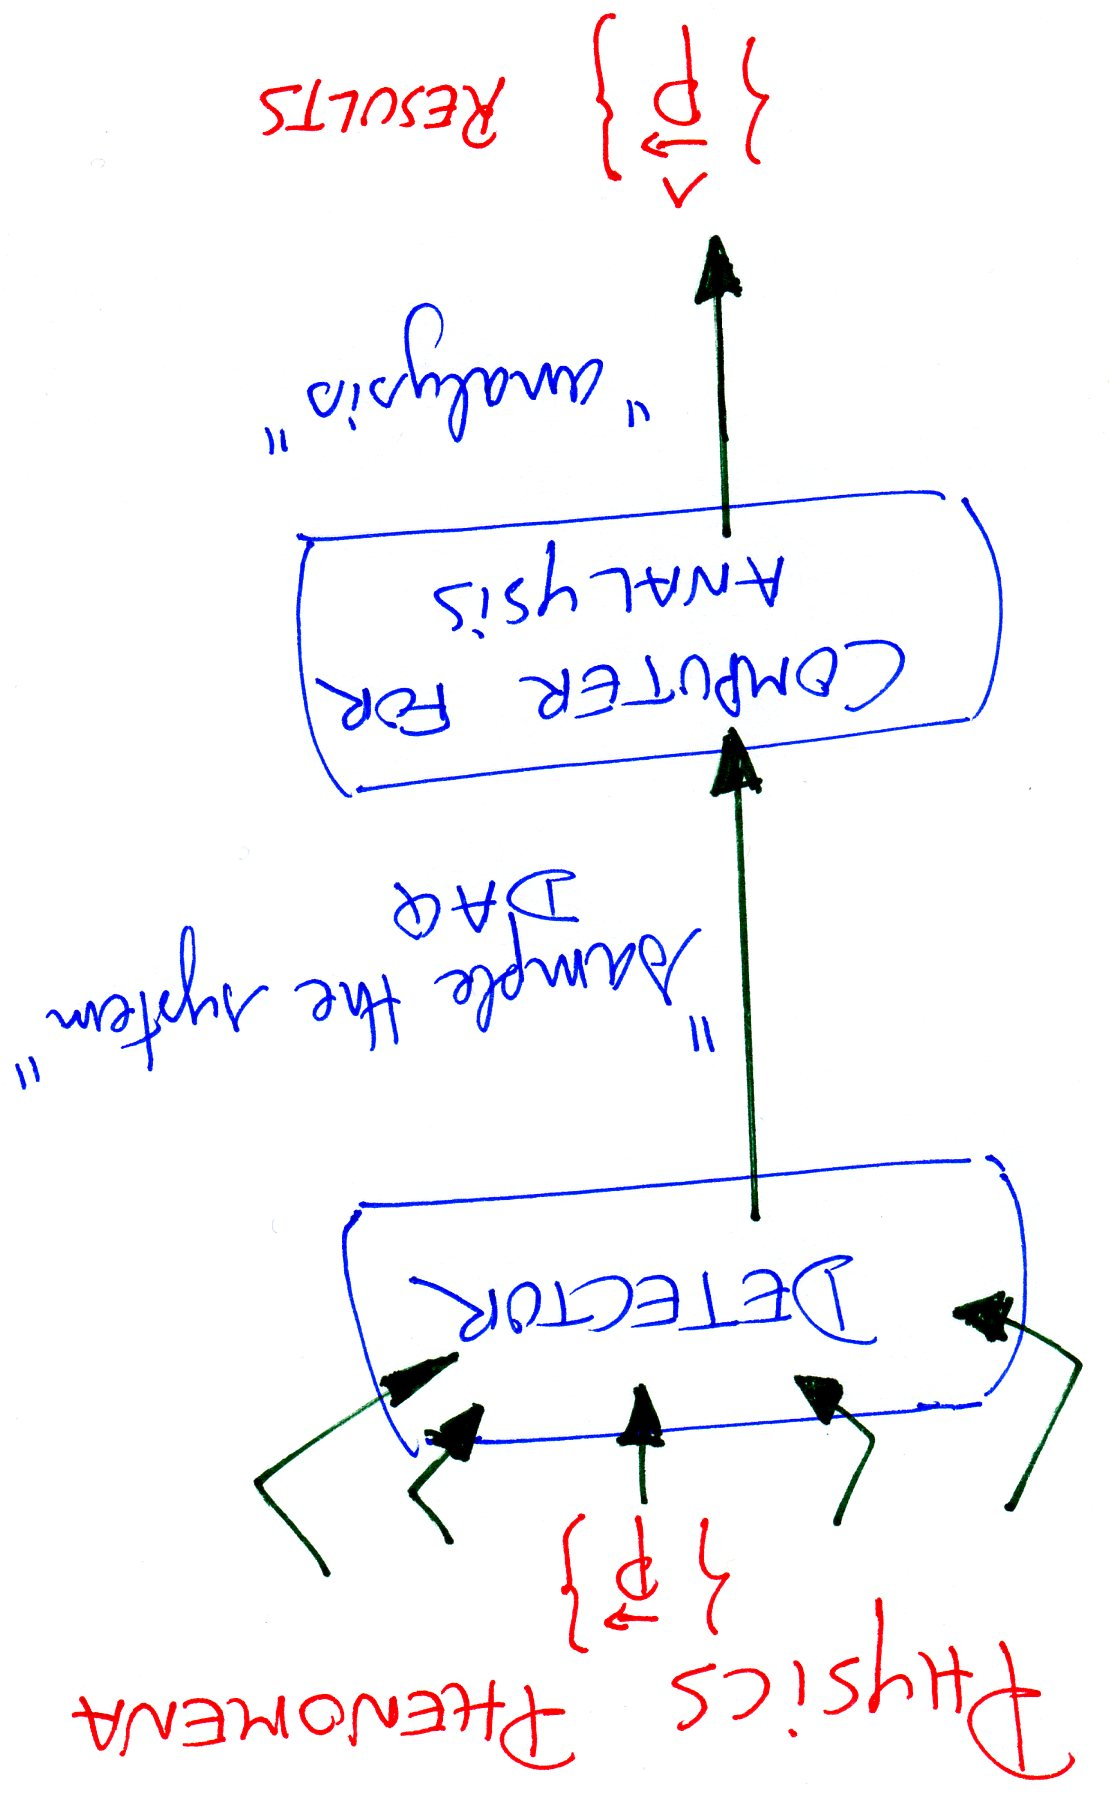 PHYSICS PHENOMENA
{p⃗}
DETECTOR
"sample the system"
DAQ
COMPUTER FOR
ANALYSIS
"analysis"
{p⃗̂} RESULTS